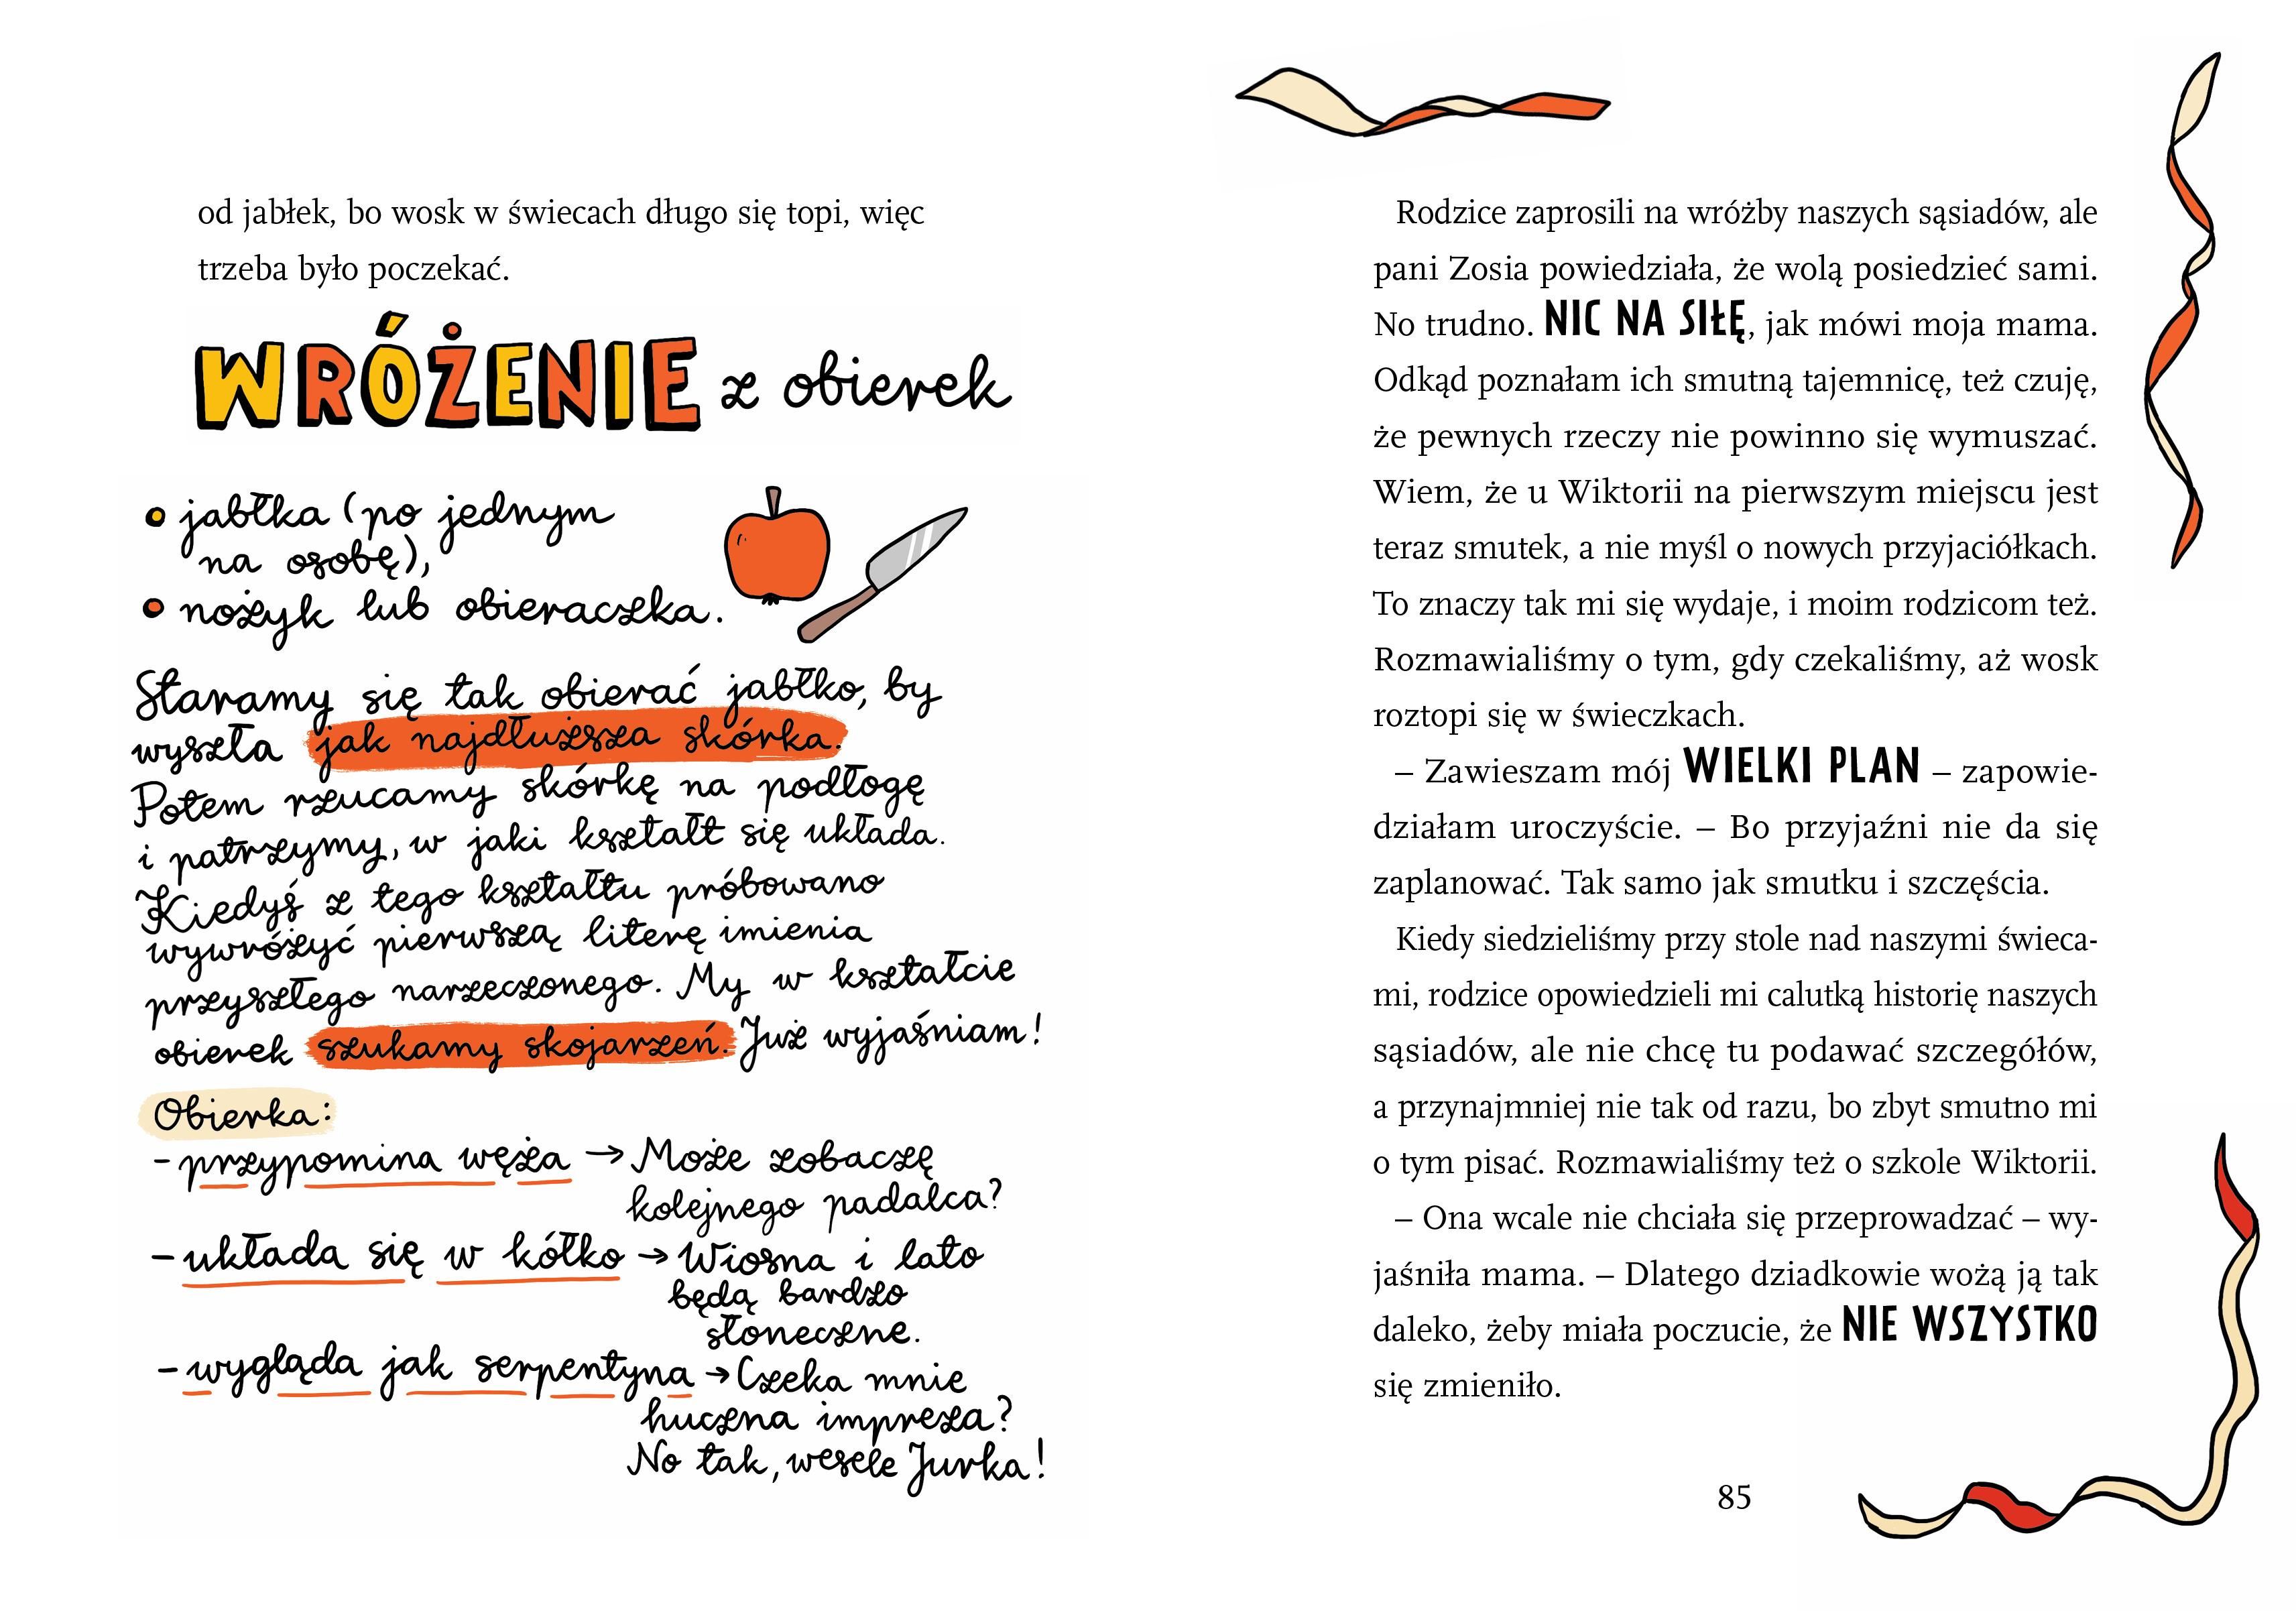 od jabłek, bo wosk w świecach długo się topi, więc
trzeba było poczekać.
WRÓŻENIE z obierek
jabłka (po jednym
na osobę),
nożyk lub obieraczka.
Staramy się tak obierać jabłko, by
wyszła jak najdłuższa skórka.
Potem rzucamy skórkę na podłogę
i patrzymy, w jaki kształt się układa.
Kiedyś z tego kształtu próbowano
wywróżyć pierwszą literę imienia
przyszłego narzeczonego. My w kształcie
obierek szukamy skojarzeń. Już wyjaśniam!
Obierka:
- przypomina węża → Może zobaczę
kolejnego padalca?
- układa się w kółko → Wiosna i lato
będą bardzo
słoneczne.
- wygląda jak serpentyna → Czeka mnie
huczna impreza?
No tak, wesele Jurka!
Rodzice zaprosili na wróżby naszych sąsiadów, ale
pani Zosia powiedziała, że wolą posiedzieć sami.
No trudno. NIC NA SIŁĘ, jak mówi moja mama.
Odkąd poznałam ich smutną tajemnicę, też czuję,
że pewnych rzeczy nie powinno się wymuszać.
Wiem, że u Wiktorii na pierwszym miejscu jest
teraz smutek, a nie myśl o nowych przyjaciółkach.
To znaczy tak mi się wydaje, i moim rodzicom też.
Rozmawialiśmy o tym, gdy czekaliśmy, aż wosk
roztopi się w świeczkach.
– Zawieszam mój WIELKI PLAN – zapowie-
działam uroczyście. – Bo przyjaźni nie da się
zaplanować. Tak samo jak smutku i szczęścia.
Kiedy siedzieliśmy przy stole nad naszymi świeca-
mi, rodzice opowiedzieli mi calutką historię naszych
sąsiadów, ale nie chcę tu podawać szczegółów,
a przynajmniej nie tak od razu, bo zbyt smutno mi
o tym pisać. Rozmawialiśmy też o szkole Wiktorii.
– Ona wcale nie chciała się przeprowadzać – wy-
jaśniła mama. – Dlatego dziadkowie wożą ją tak
daleko, żeby miała poczucie, że NIE WSZYSTKO
się zmieniło.
85